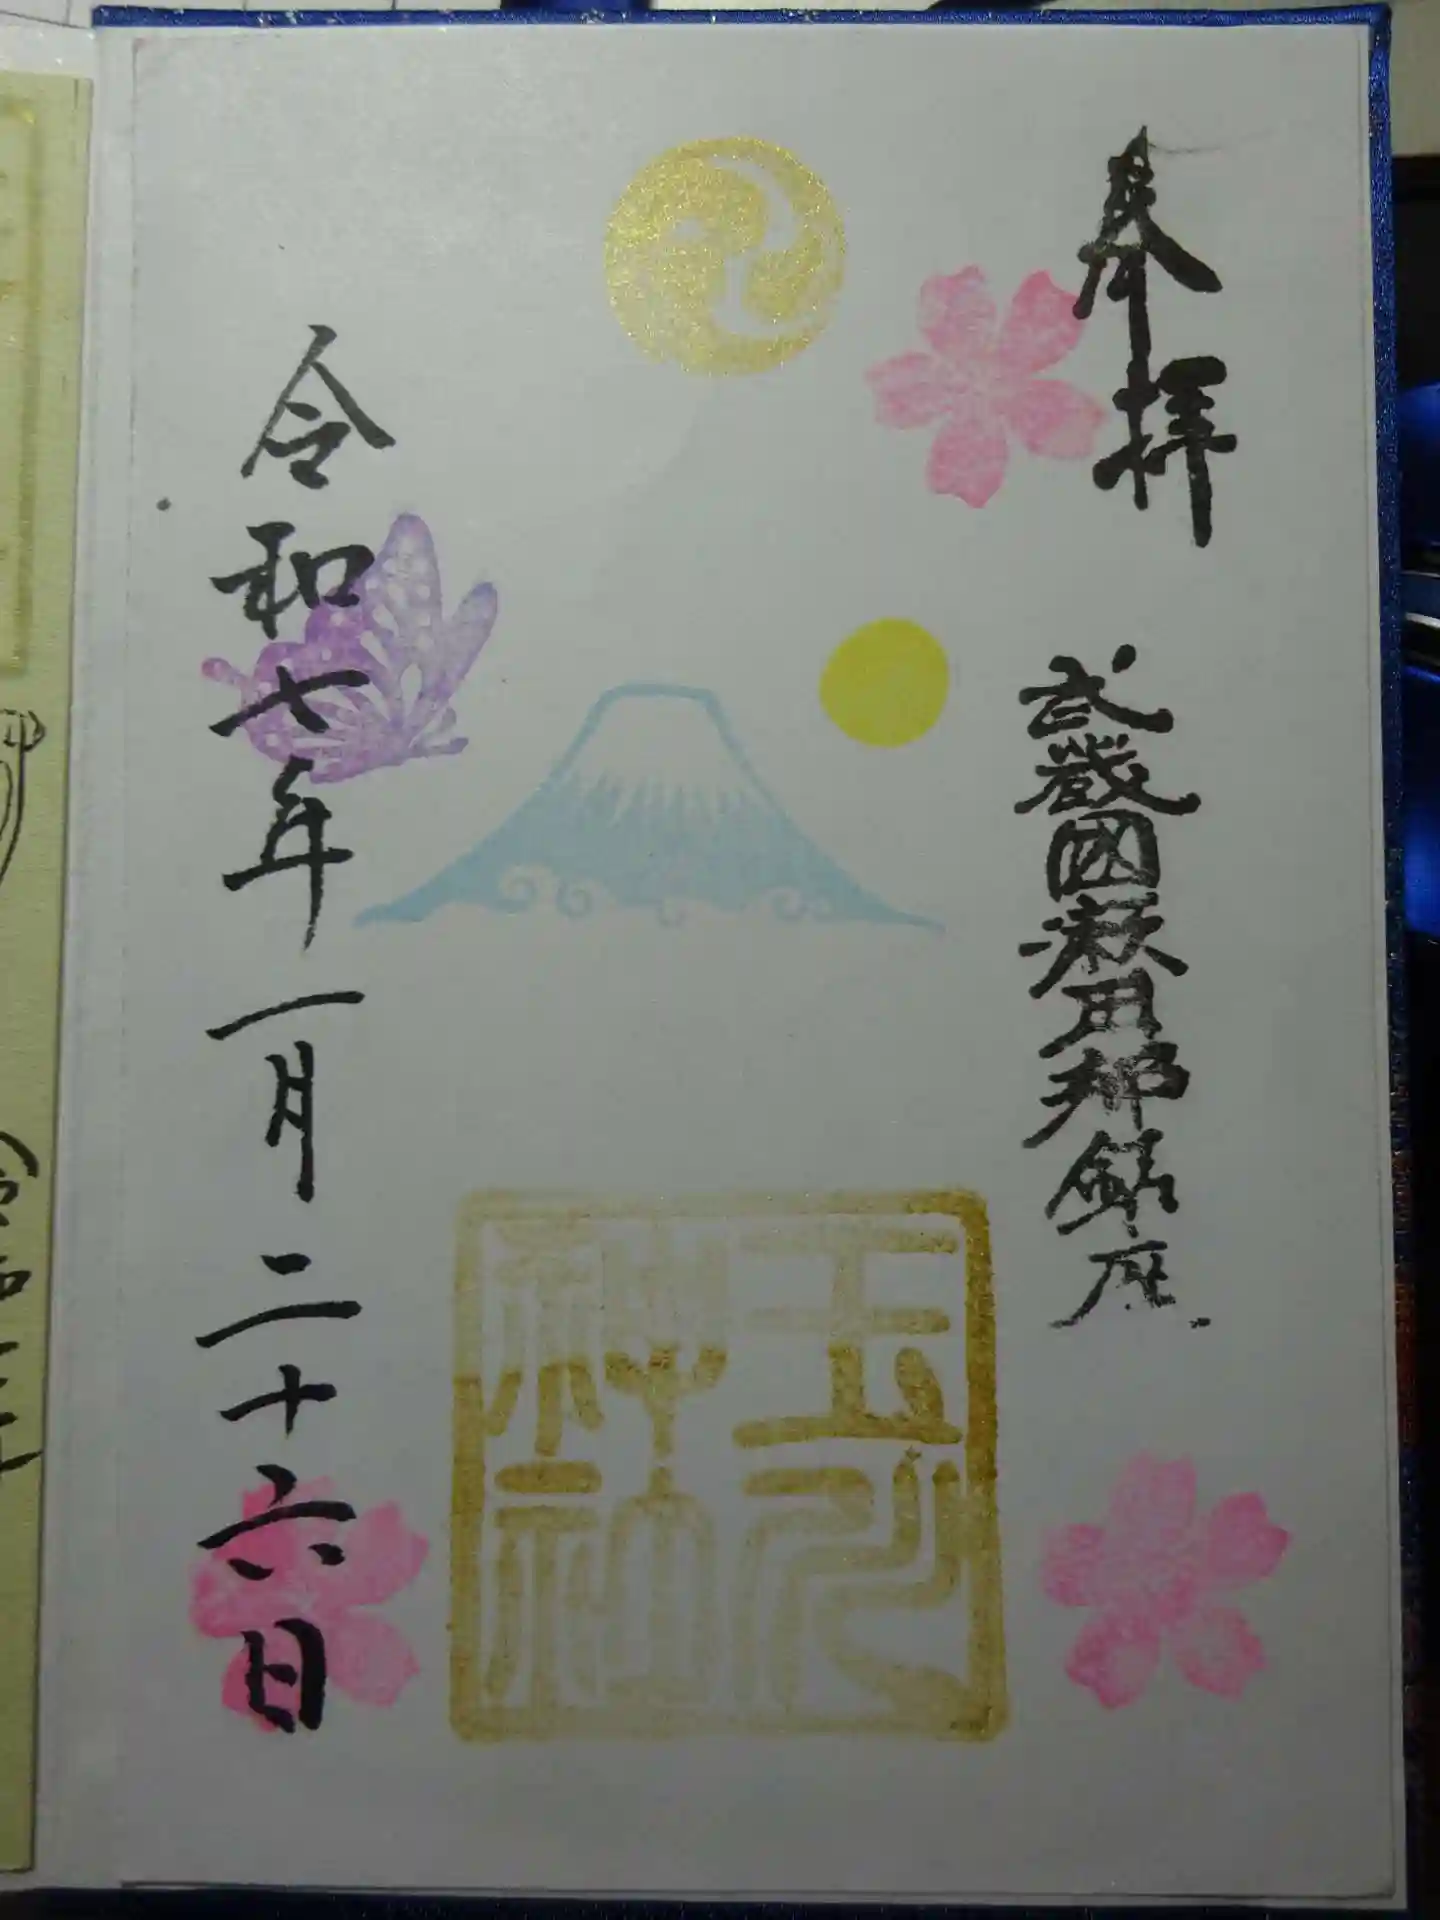 奉拝
武蔵國瀬田 鎮座
玉川
神社
令和七年一月二十六日